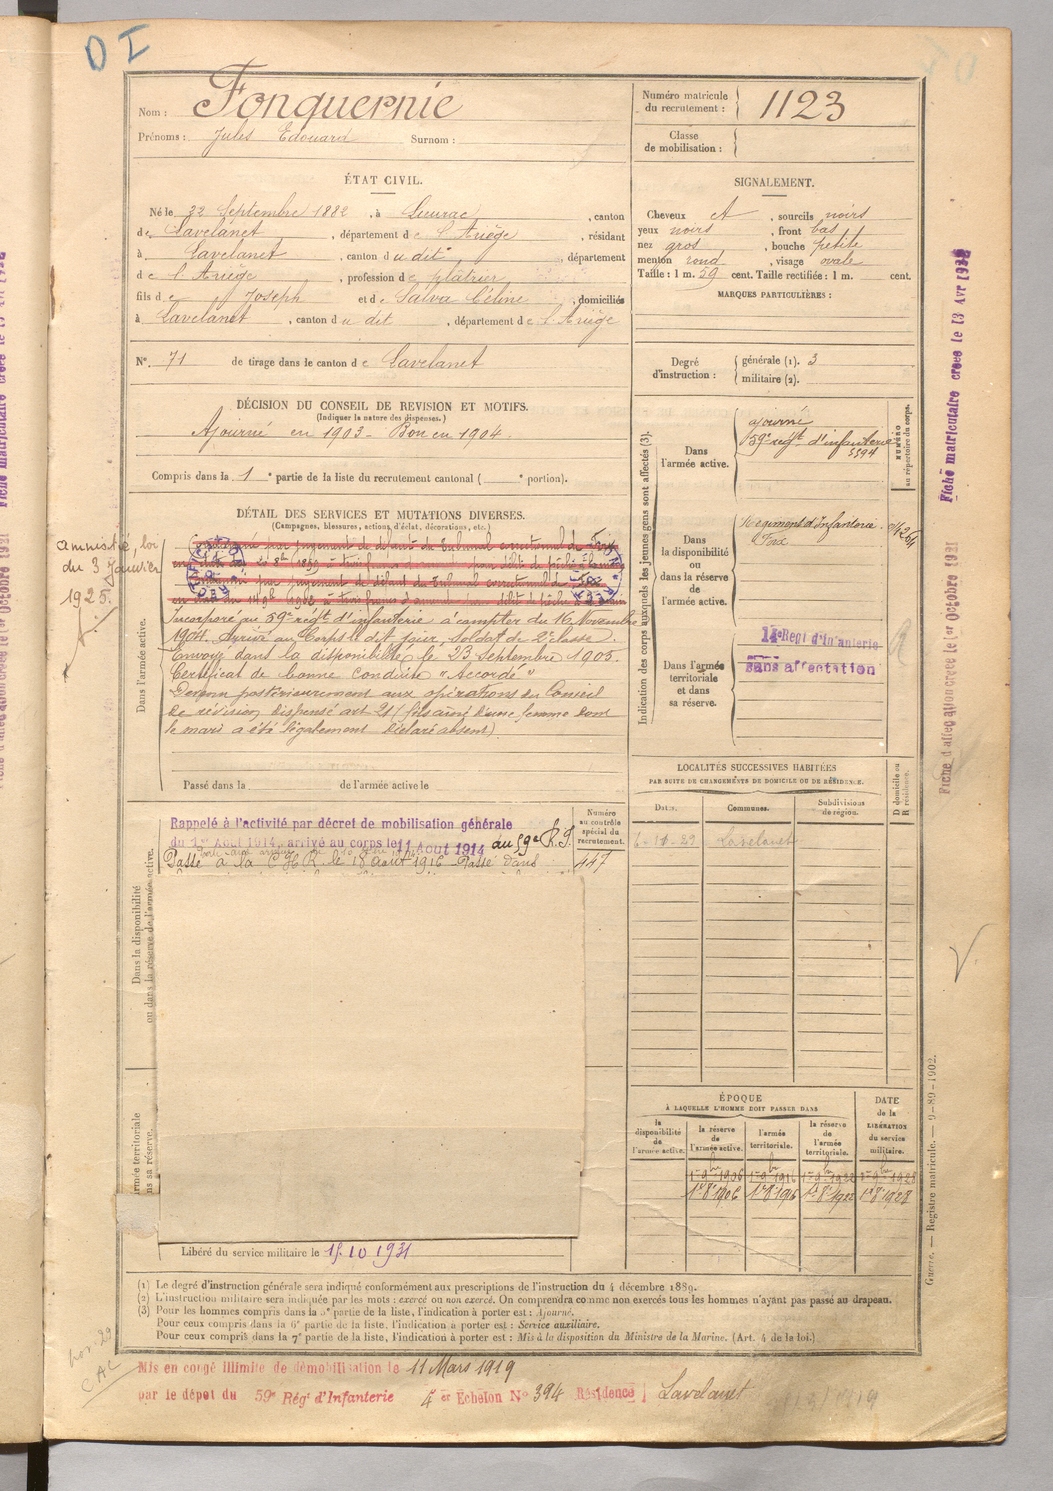 D I
Nom : Fonquernie
Prénoms : Jules Edouard Surnom :
Numéro matricule du recrutement : 1123
Classe de mobilisation :
ÉTAT CIVIL.
Né le 22 Septembre 1882, à Lieurac, canton
de Lavelanet, département de l'Ariège, résidant
à Lavelanet, canton du dit, département
de l'Ariège, profession de plâtrier
fils de Joseph et de Salva Céline, domiciliés
à Lavelanet, canton du dit, département de l'Ariège
N° 71 de tirage dans le canton de Lavelanet
SIGNALEMENT.
Cheveux et, sourcils noirs
yeux noirs, front bas
nez gros, bouche petite
menton rond, visage ovale
Taille : 1 m. 59 cent. Taille rectifiée : 1 m. cent.
MARQUES PARTICULIÈRES :
Degré d'instruction : générale (1). 3
militaire (2).
DÉCISION DU CONSEIL DE REVISION ET MOTIFS.
(Indiquer la nature des dispenses.)
Ajourné en 1903 - Bon en 1904.
Compris dans la 1e partie de la liste du recrutement cantonal ( e portion).
DÉTAIL DES SERVICES ET MUTATIONS DIVERSES.
(Campagnes, blessures, actions d'éclat, décorations, etc.)
amnistié, loi
du 3 Janvier
1925.
Condamné par jugement de défaut du Tribunal correctionnel de Foix
à trois francs d'amende pour délit de pêche
Condamné par jugement de défaut du Tribunal correctionnel de Foix
1902 à trois francs d'amende pour délit de pêche
Dans l'armée active.
Incorporé au 59e régt d'infanterie à compter du 16 Novembre
1904. Arrivé au Corps le dit jour, Soldat de 2e classe.
Envoyé dans la disponibilité le 23 Septembre 1905.
Certificat de bonne conduite "Accordé"
Devenu postérieurement aux opérations du Conseil
de révision dispensé art 21 (fils aîné d'une femme dont
le mari a été légalement déclaré absent)
Passé dans la de l'armée active le
Indication des corps auxquels les jeunes gens sont affectés (3).
NUMÉRO au répertoire du corps.
Dans l'armée active.
ajourné
59e régt d'infanterie
5594
Dans la disponibilité ou dans la réserve de l'armée active.
Régiment d'Infanterie
Foix
Dans l'armée territoriale et dans sa réserve.
14e Regt d'Infanterie
Sans affectation
Dans la disponibilité ou dans la réserve de l'armée active.
Rappelé à l'activité par décret de mobilisation générale
du 1er Aout 1914, arrivé au corps le 11 Aout 1914 au 59e R.I.
Passé à la C.H.R. le 18 août 1916 - Passé dans
Numéro au contrôle spécial du recrutement.
447
LOCALITÉS SUCCESSIVES HABITÉES
PAR SUITE DE CHANGEMENTS DE DOMICILE OU DE RÉSIDENCE.
Dates. Communes. Subdivisions de région. D domicile ou R résidence.
6-11-29 Lavelanet
armée territoriale
ns sa réserve.
ÉPOQUE
À LAQUELLE L'HOMME DOIT PASSER DANS
la disponibilité de l'armée active. la réserve de l'armée active. l'armée territoriale. la réserve de l'armée territoriale. DATE de la LIBÉRATION du service militaire.
1er 9bre 1906 1er 9bre 1916 1er 9bre 1922 1er 9bre 1928
1er 8bre 1906 1er 8bre 1916 1er 8bre 1922 1er 8bre 1928
Libéré du service militaire le 15.10.1931
(1) Le degré d'instruction générale sera indiqué conformément aux prescriptions de l'instruction du 4 décembre 1889.
(2) L'instruction militaire sera indiquée par les mots : exercé ou non exercé. On comprendra comme non exercés tous les hommes n'ayant pas passé au drapeau.
(3) Pour les hommes compris dans la 5e partie de la liste, l'indication à porter est : Ajourné.
Pour ceux compris dans la 6e partie de la liste, l'indication à porter est : Service auxiliaire.
Pour ceux compris dans la 7e partie de la liste, l'indication à porter est : Mis à la disposition du Ministre de la Marine. (Art. 4 de la loi.)
Mis en congé illimité de démobilisation le 11 Mars 1919
par le dépôt du 59e Régt d'Infanterie 4er Échelon N° 394 Résidence Lavelanet
CAC
Guerre. — Registre matricule. — 9-89-1902.
Fiche d'affectation créée le 1er Octobre 1921
Fiche matriculaire créée le 13 Avr 1922